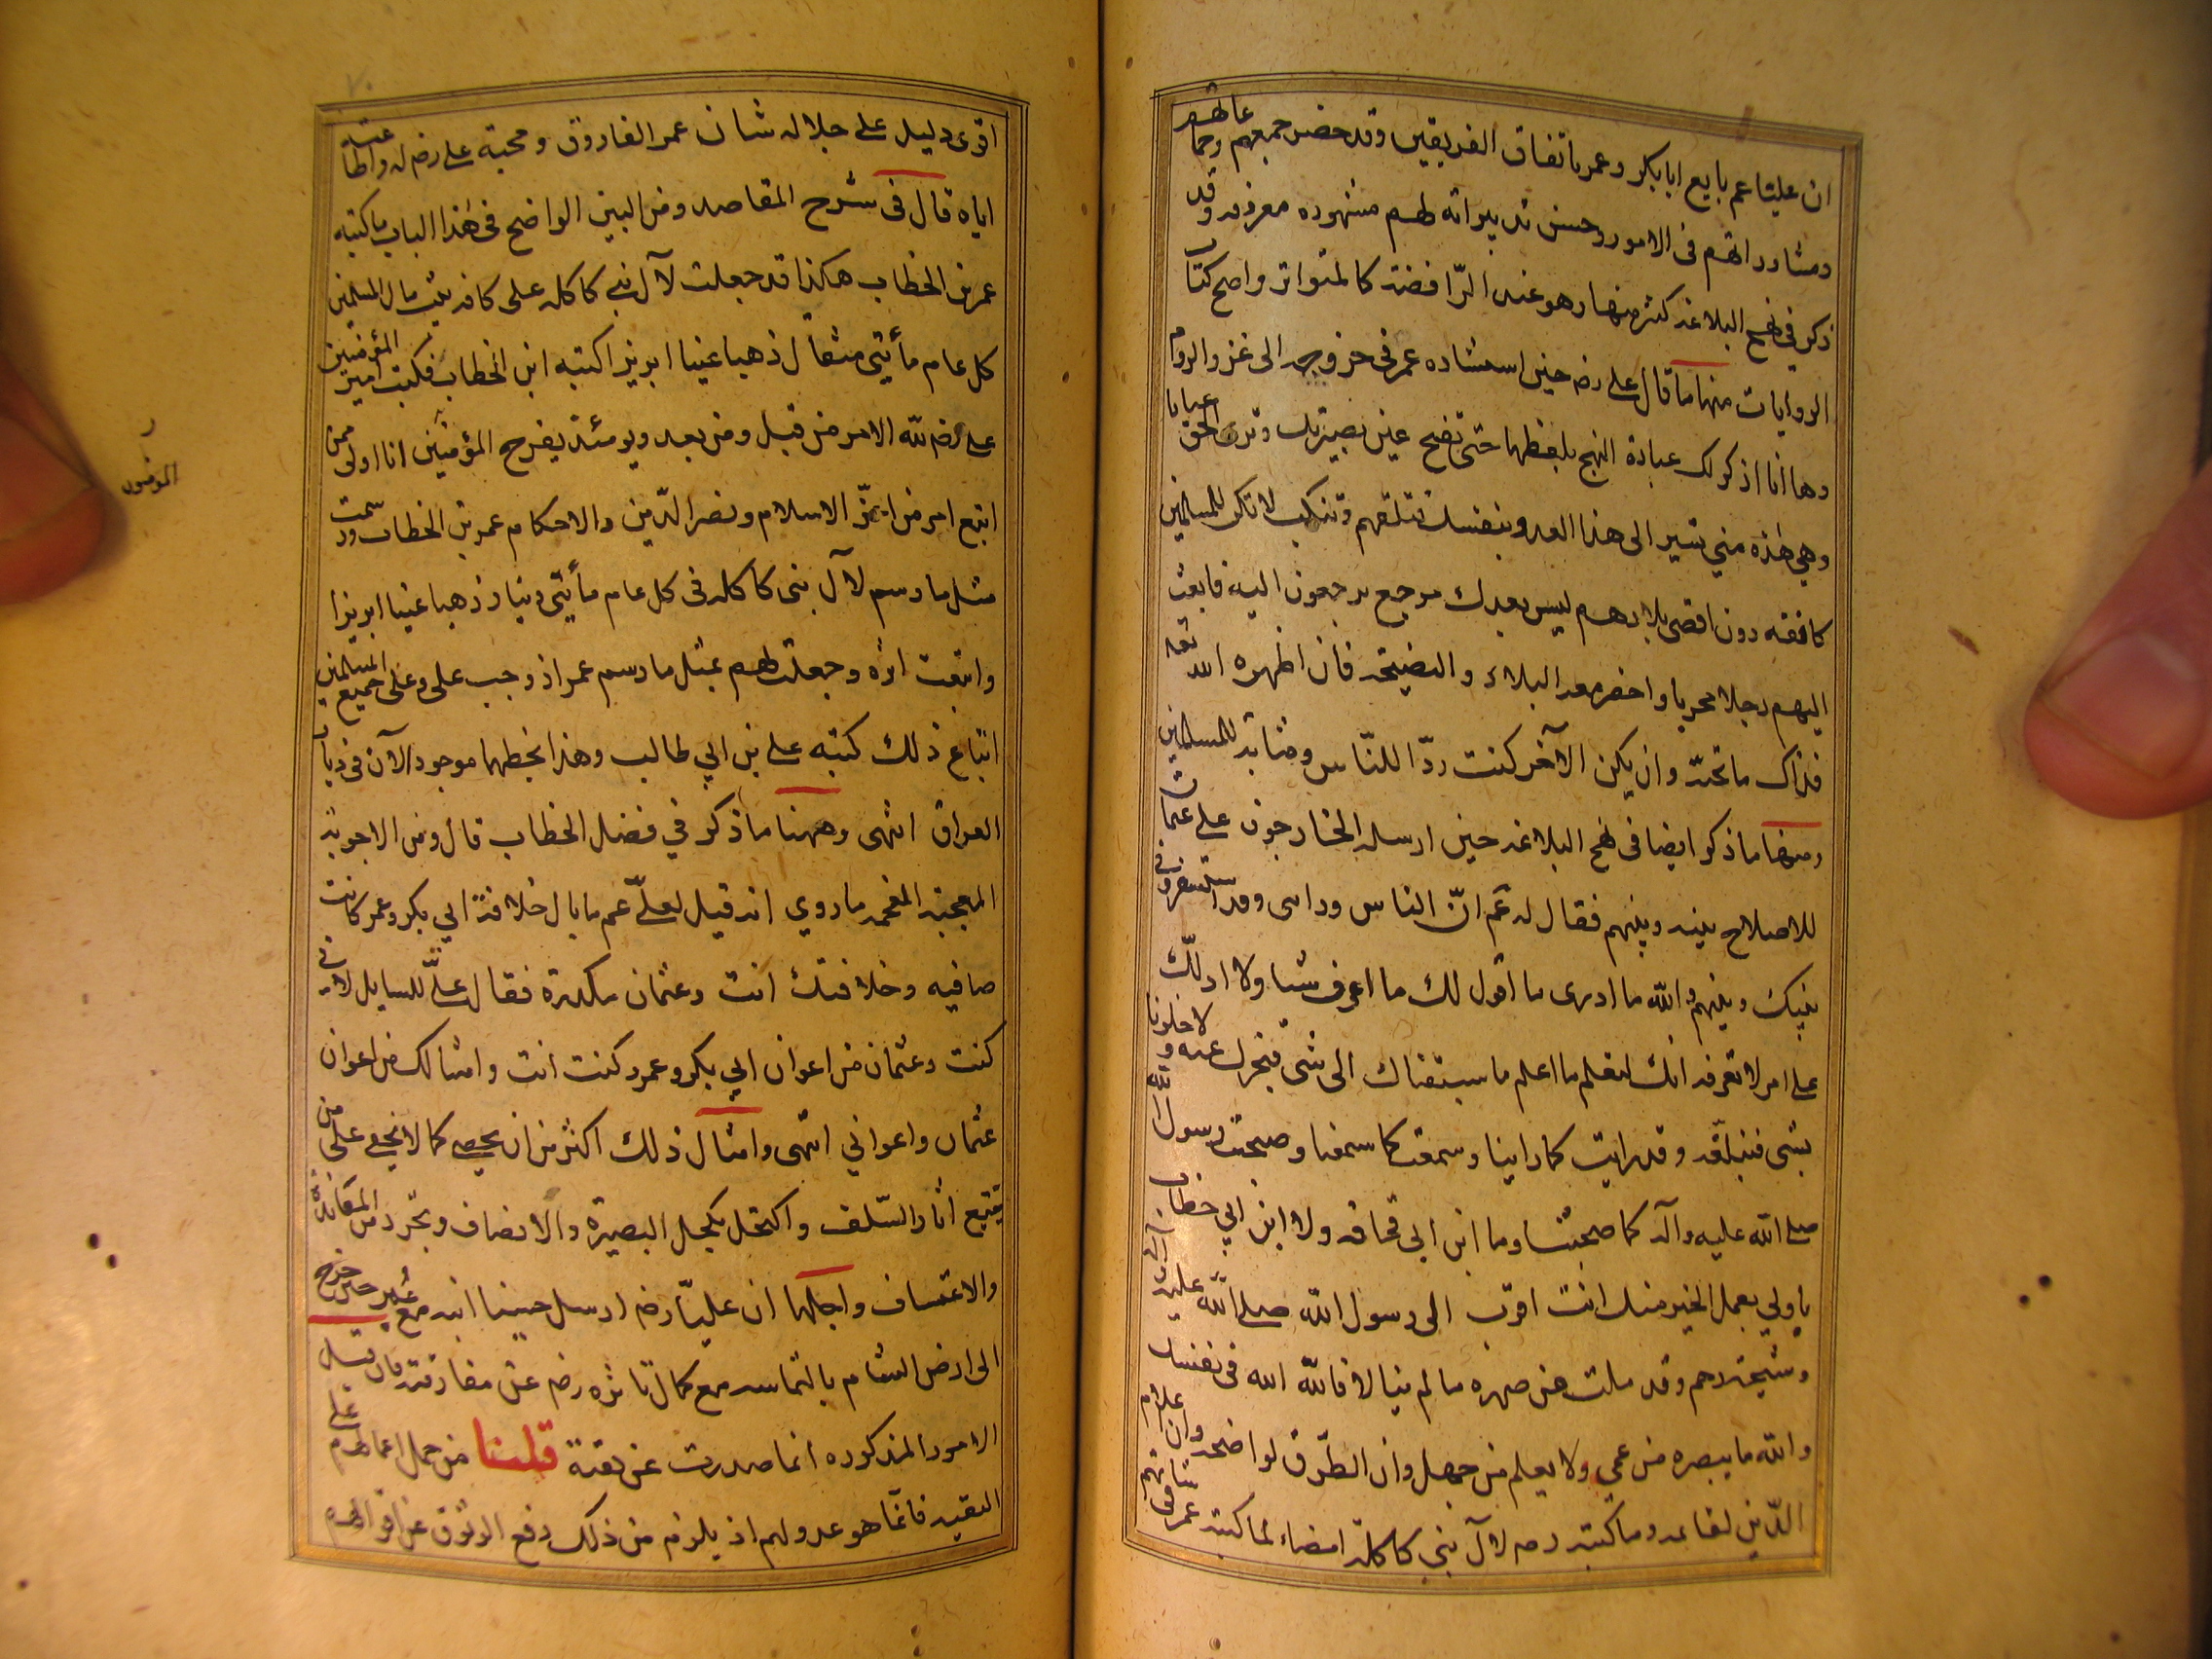 ان عليّا عم بايع ابابكر وعمر باتفاق الفريقين وقد حضر جمعهم وجماعاتهم
ومشاوراتهم فى الامور وحسن تدبيراته لهم مشهوره معروفه وقد
ذكر في نهج البلاغه كثير منها وهو عند الرّافضة كالمتواتر واصح كتاب
الروايات منها ما قال على رضه حين استشاره عمر فى خروجه الى غزو الروم
وها انا اذكر لك عبارة النهج بلفظها حتى تضح عين بصيرتك وترى الحق عيانا
وهي هذه متي تسير الى هذا العدو بنفسك فتلقهم وتنكب لا تكن للمسلمين
كانفه دون اقصى بلادهم ليس بعدك مرجع يرجعون اليه فابعث
اليهم رجلا محربا واحفر معه البلاء والنصيحه فان اظهره الله تعه
فذاك ما تحبّ وان يكن الآخر كنت ردّا للنّاس ومثابة للمسلمين
ومنها ما ذكر ايضا فى نهج البلاغه حين ارسله الخارجون على عثمان
للاصلاح بينه وبينهم فقال له عم انّ الناس ورائى وقد استسفروني
بينك وبينهم والله ما ادرى ما اقول لك ما اعرف شيا ولا ادلّك
على امر لا تعرفه انك لتعلم ما اعلم ما سبقناك الى شى فنخبرك عنه ولا خلونا
بشى فنبلّغه وقد رايت كما راينا وسمعت كما سمعنا وصحبت رسول الله
صلى الله عليه وآله كما صحبنا وما ابن ابى قحافه ولا ابن ابي خطاب
باولي بعمل الخير منك انت اقرب الى رسول الله صلى الله عليه وآله
وشيجة رحم وقد نلت من صهره ما لم ينالا فالله الله فى نفسك
والله ما يبصره من عمي ولا يعلم من جهل وان الطّرق لواضحه وان اعلام
الدّين لقاعه وما كتبه رضه لآل بني كاكله امضاء لما كتبه عمر فى
اقوى دليل على جلاله شان عمر الفاروق ومحبة على رضه له واطاعته
اياه قال فى شرح المقاصد ومن البين الواضح فى هذا الباب ما كتبه
عمر بن الخطاب هكذا قد جعلت لآل بني كاكله على كافه بيت مال المسلمين
كل عام مأتي مثقال ذهبا عينا ابريزا كتبه ابن الخطاب فكتب امير المؤمنين
على رضه لله الامر من قبل ومن بعد ويومئذ يفرح المؤمنين انا اولى ممن
اتبع امر من اعزّ الاسلام ونصر الدّين والاحكام عمر بن الخطاب ورسمت
مثل ما رسم لآل بنى كاكله فى كل عام مأتي دينار ذهبا عينا ابريزا
واتبعت اثره وجعلت لهم بمثل ما رسم عمر اذ وجب على وعلى جميع المسلمين
اتباع ذلك كتبه على بن ابي طالب وهذا بخطهما موجود الآن فى ديار
العراق انتهى وههنا ما ذكر في فضل الخطاب قال ومن الاجوبة
المعجبة المفحمه ما روي انه قيل لعليّ عم ما بال خلافة ابي بكر وعمر كانت
صافيه وخلافتك انت وعثمان مكدرة فقال علىّ للسايل لانى
كنت وعثمان من اعوان ابي بكر وعمر وكنت انت وامثالك من اعوان
عثمان واعواني انتهى وامثال ذلك اكثر من ان يحصى كما لا يخفى على من
تتبع اثار السّلف واكتحل بكحل البصيرة والانصاف وتجرد من المكابرة
والاعتساف واجلها ان عليّا رضه ارسل حسينا ابنه مع عمر حين خرج
الى ارض الشام بالتماسه مع كمال تاثره رضه عن مفارقته فان قيل
الامور المذكوره انما صدرت عن تقية قلنا من حمل اعمالهم على
التقيه فانّما هو عدولهم اذ يلزم من ذلك رفع الوثوق عن اقوالهم
المؤمنون